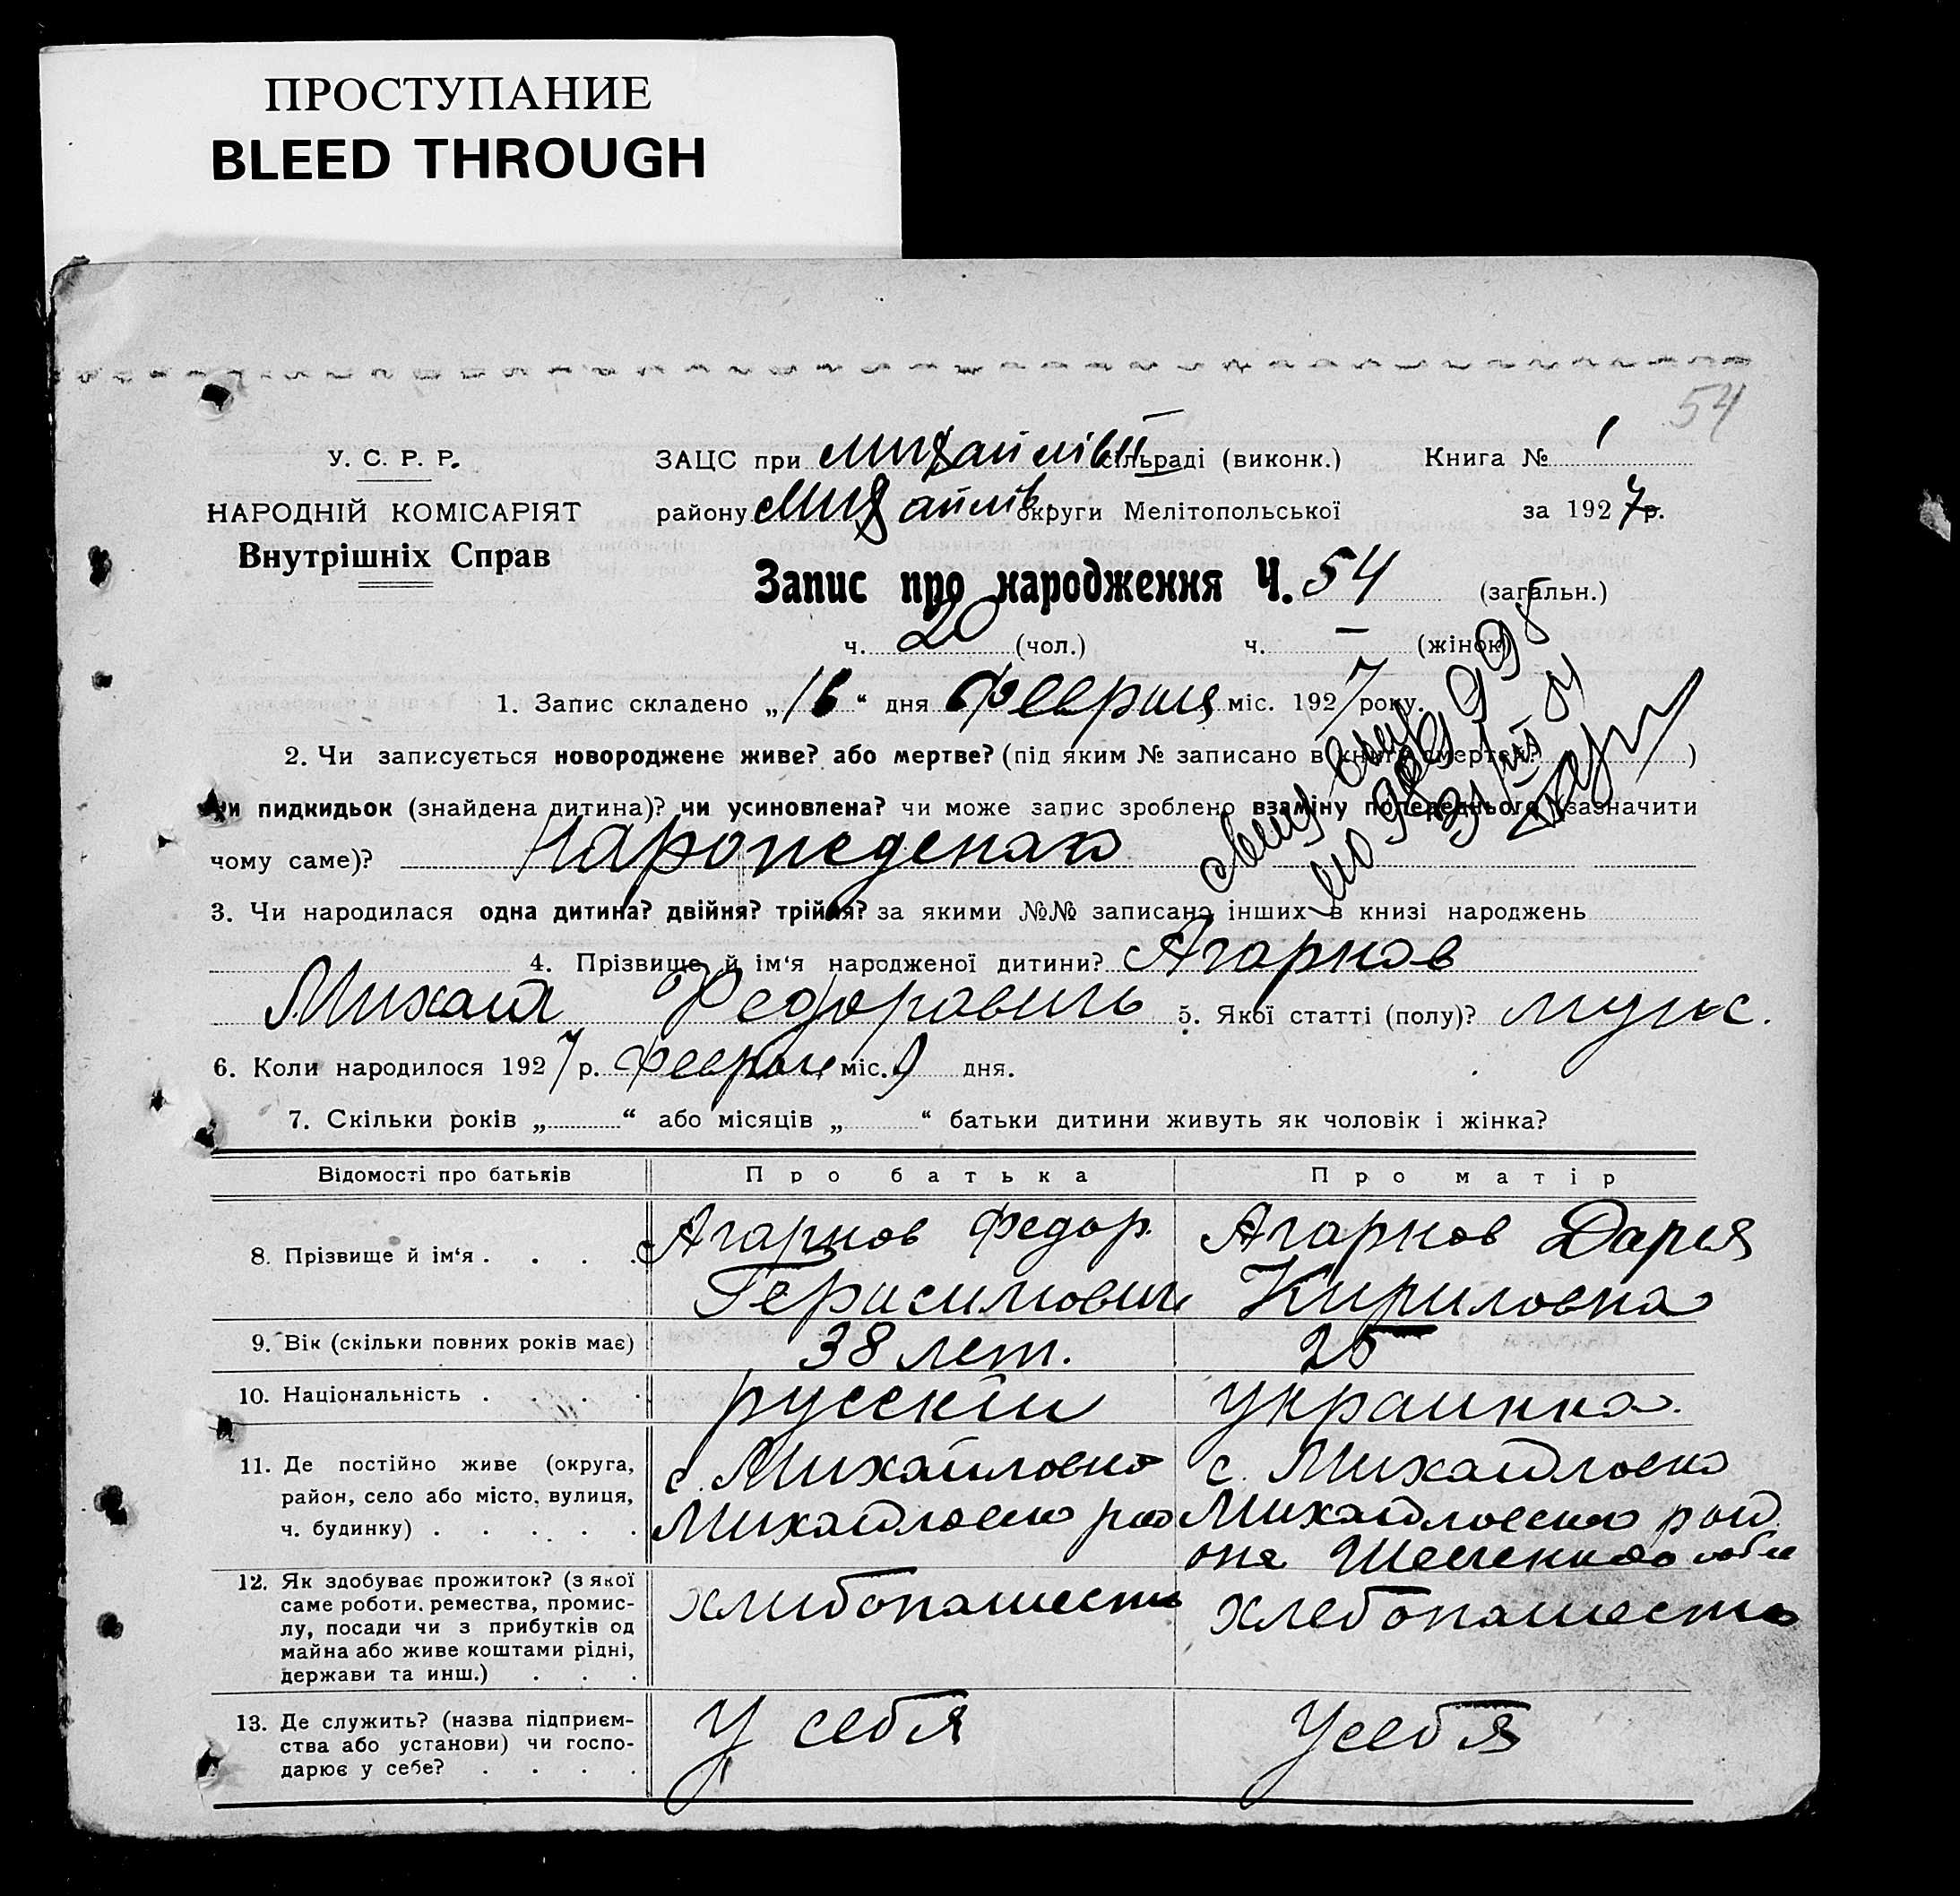 ПРОСТУПАНИЕ
BLEED THROUGH
54
У. С. Р. Р.
НАРОДНІЙ КОМІСАРІЯТ
Внутрішніх Справ
ЗАЦС при Михайлів II сільраді (виконк.) Книга № 1
району Михайлів округи Мелітопольської за 1927 р.
Запис про народження Ч. 54 (загальн.)
ч. 20 (чол.) ч. — (жінок)
1. Запис складено „16“ дня Февраля міс. 1927 року.
2. Чи записується новороджене живе? або мертве? (під яким № записано в книги смертей? )
чи пидкидьок (знайдена дитина)? чи усиновлена? чи може запис зроблено взаміну попереднього (зазначити
чому саме)?
3. Чи народилася одна дитина? двійня? трійня? за якими №№ записано інших в книзі народжень
4. Прізвище й ім‘я народженої дитини? Агарков
Михаил Федоравичь 5. Якої статті (полу)? мужс.
6. Коли народилося 1927 р. Феврал міс. 9 дня.
7. Скільки років „ “ або місяців „ “ батьки дитини живуть як чоловік і жінка?
Відомості про батьків Про батька Про матір
8. Прізвище й ім‘я . . . . Агарков Федор Агарков Дария
Герасимович Кириловна
9. Вік (скільки повних років має) 38 лет. 25
10. Національність . . . . русскій украинка.
11. Де постійно живе (округа, с. Михайловка с. Михайловка
район, село або місто, вулиця, Михайловско Михайловского рай
ч. будинку) . . . . . она
12. Як здобуває прожиток? (з якої хлибопашеств хлебопашество
саме роботи, ремества, промис-
лу, посади чи з прибутків од
майна або живе коштами рідні,
держави та инш.) . . .
13. Де служить? (назва підприєм- У себя У себя
ства або установи) чи госпо-
дарює у себе? . . . .